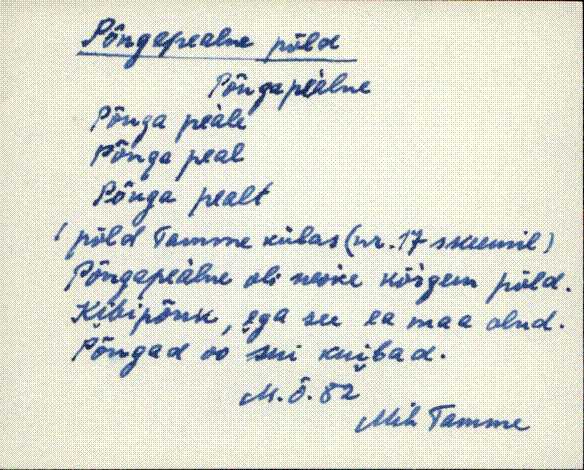 Põngapealne põld
Põngapeàlne
Põnga peàle
Põnga peal
Põnga pealt
põld Tamme külas (nr. 17 skeemil)
Põngapeàlne oli neoke kõigem põld.
Kibipõnk, ega see ea maa olnd.
Põngad oo sui kuibad.
M. Õ. 82
Mih Tamme